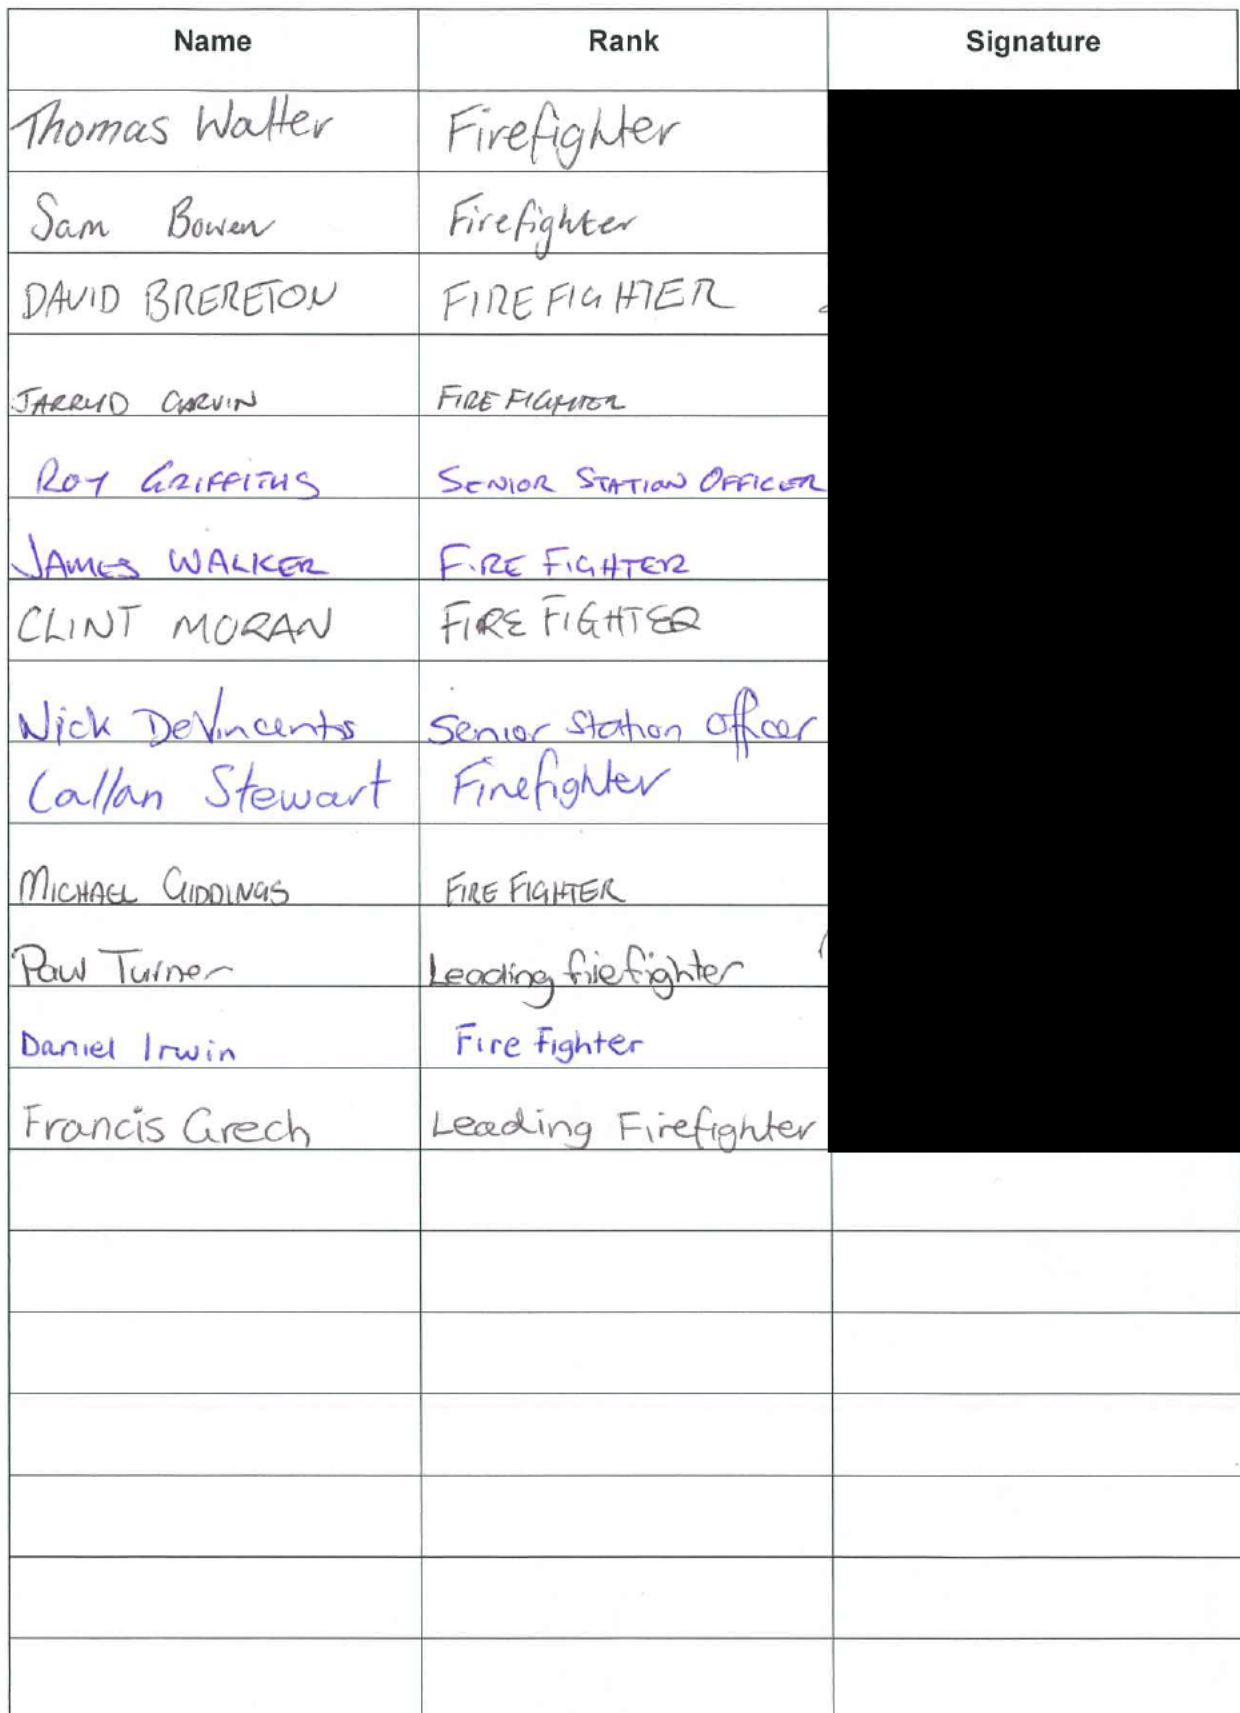 Name Rank Signature
Thomas Walter Firefighter
Sam Bowen Firefighter
DAVID BRERETON FIREFIGHTER
JARRYD GARVIN FIRE FIGHTER
ROY GRIFFITHS SENIOR STATION OFFICER
JAMES WALKER FIRE FIGHTER
CLINT MORAN FIRE FIGHTER
Nick DeVincentis Senior Station Officer
Callan Stewart Firefighter
MICHAEL GIDDINGS FIRE FIGHTER
Paul Turner Leading firefighter
Daniel Irwin Fire Fighter
Francis Grech Leading Firefighter